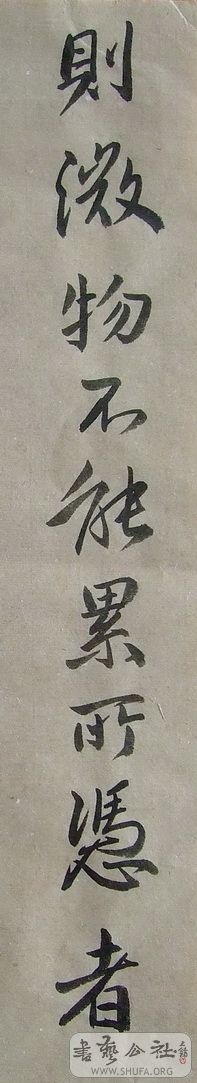 則微物不能累所憑者
書藝公社
WWW.SHUFA.ORG